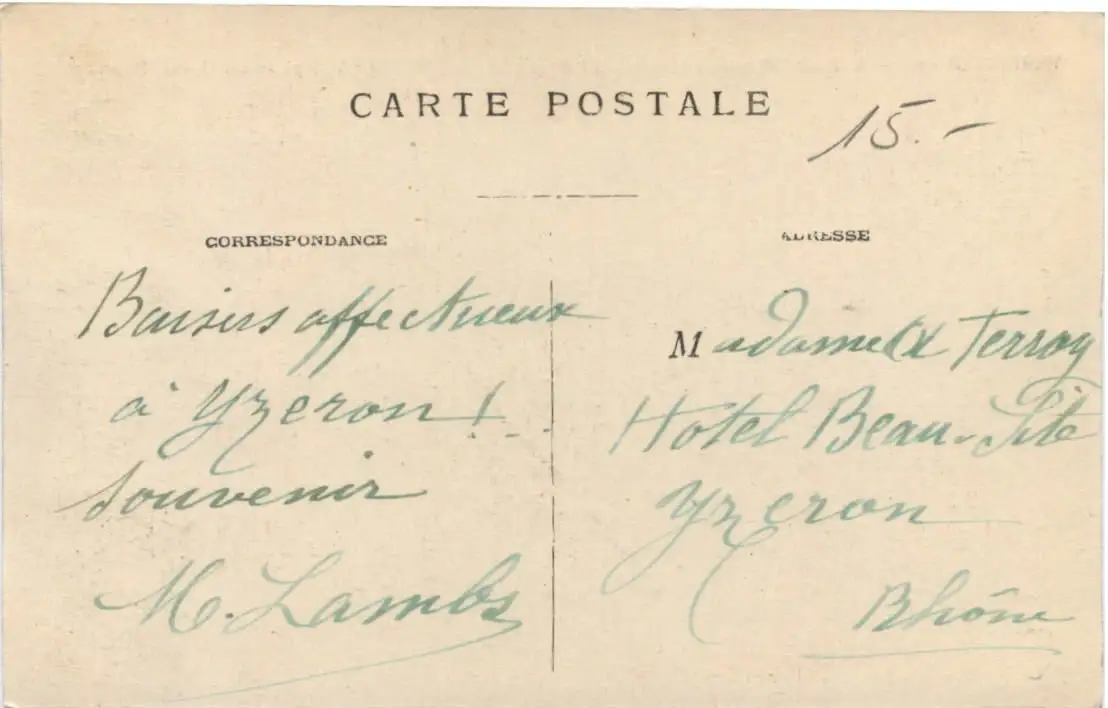 CARTE POSTALE
15.-
CORRESPONDANCE
ADRESSE
Baisers affectueux
à Yzeron !...
Souvenir
M. Lambs
Madame Terray
Hotel Beau-Site
Yzeron
Rhône